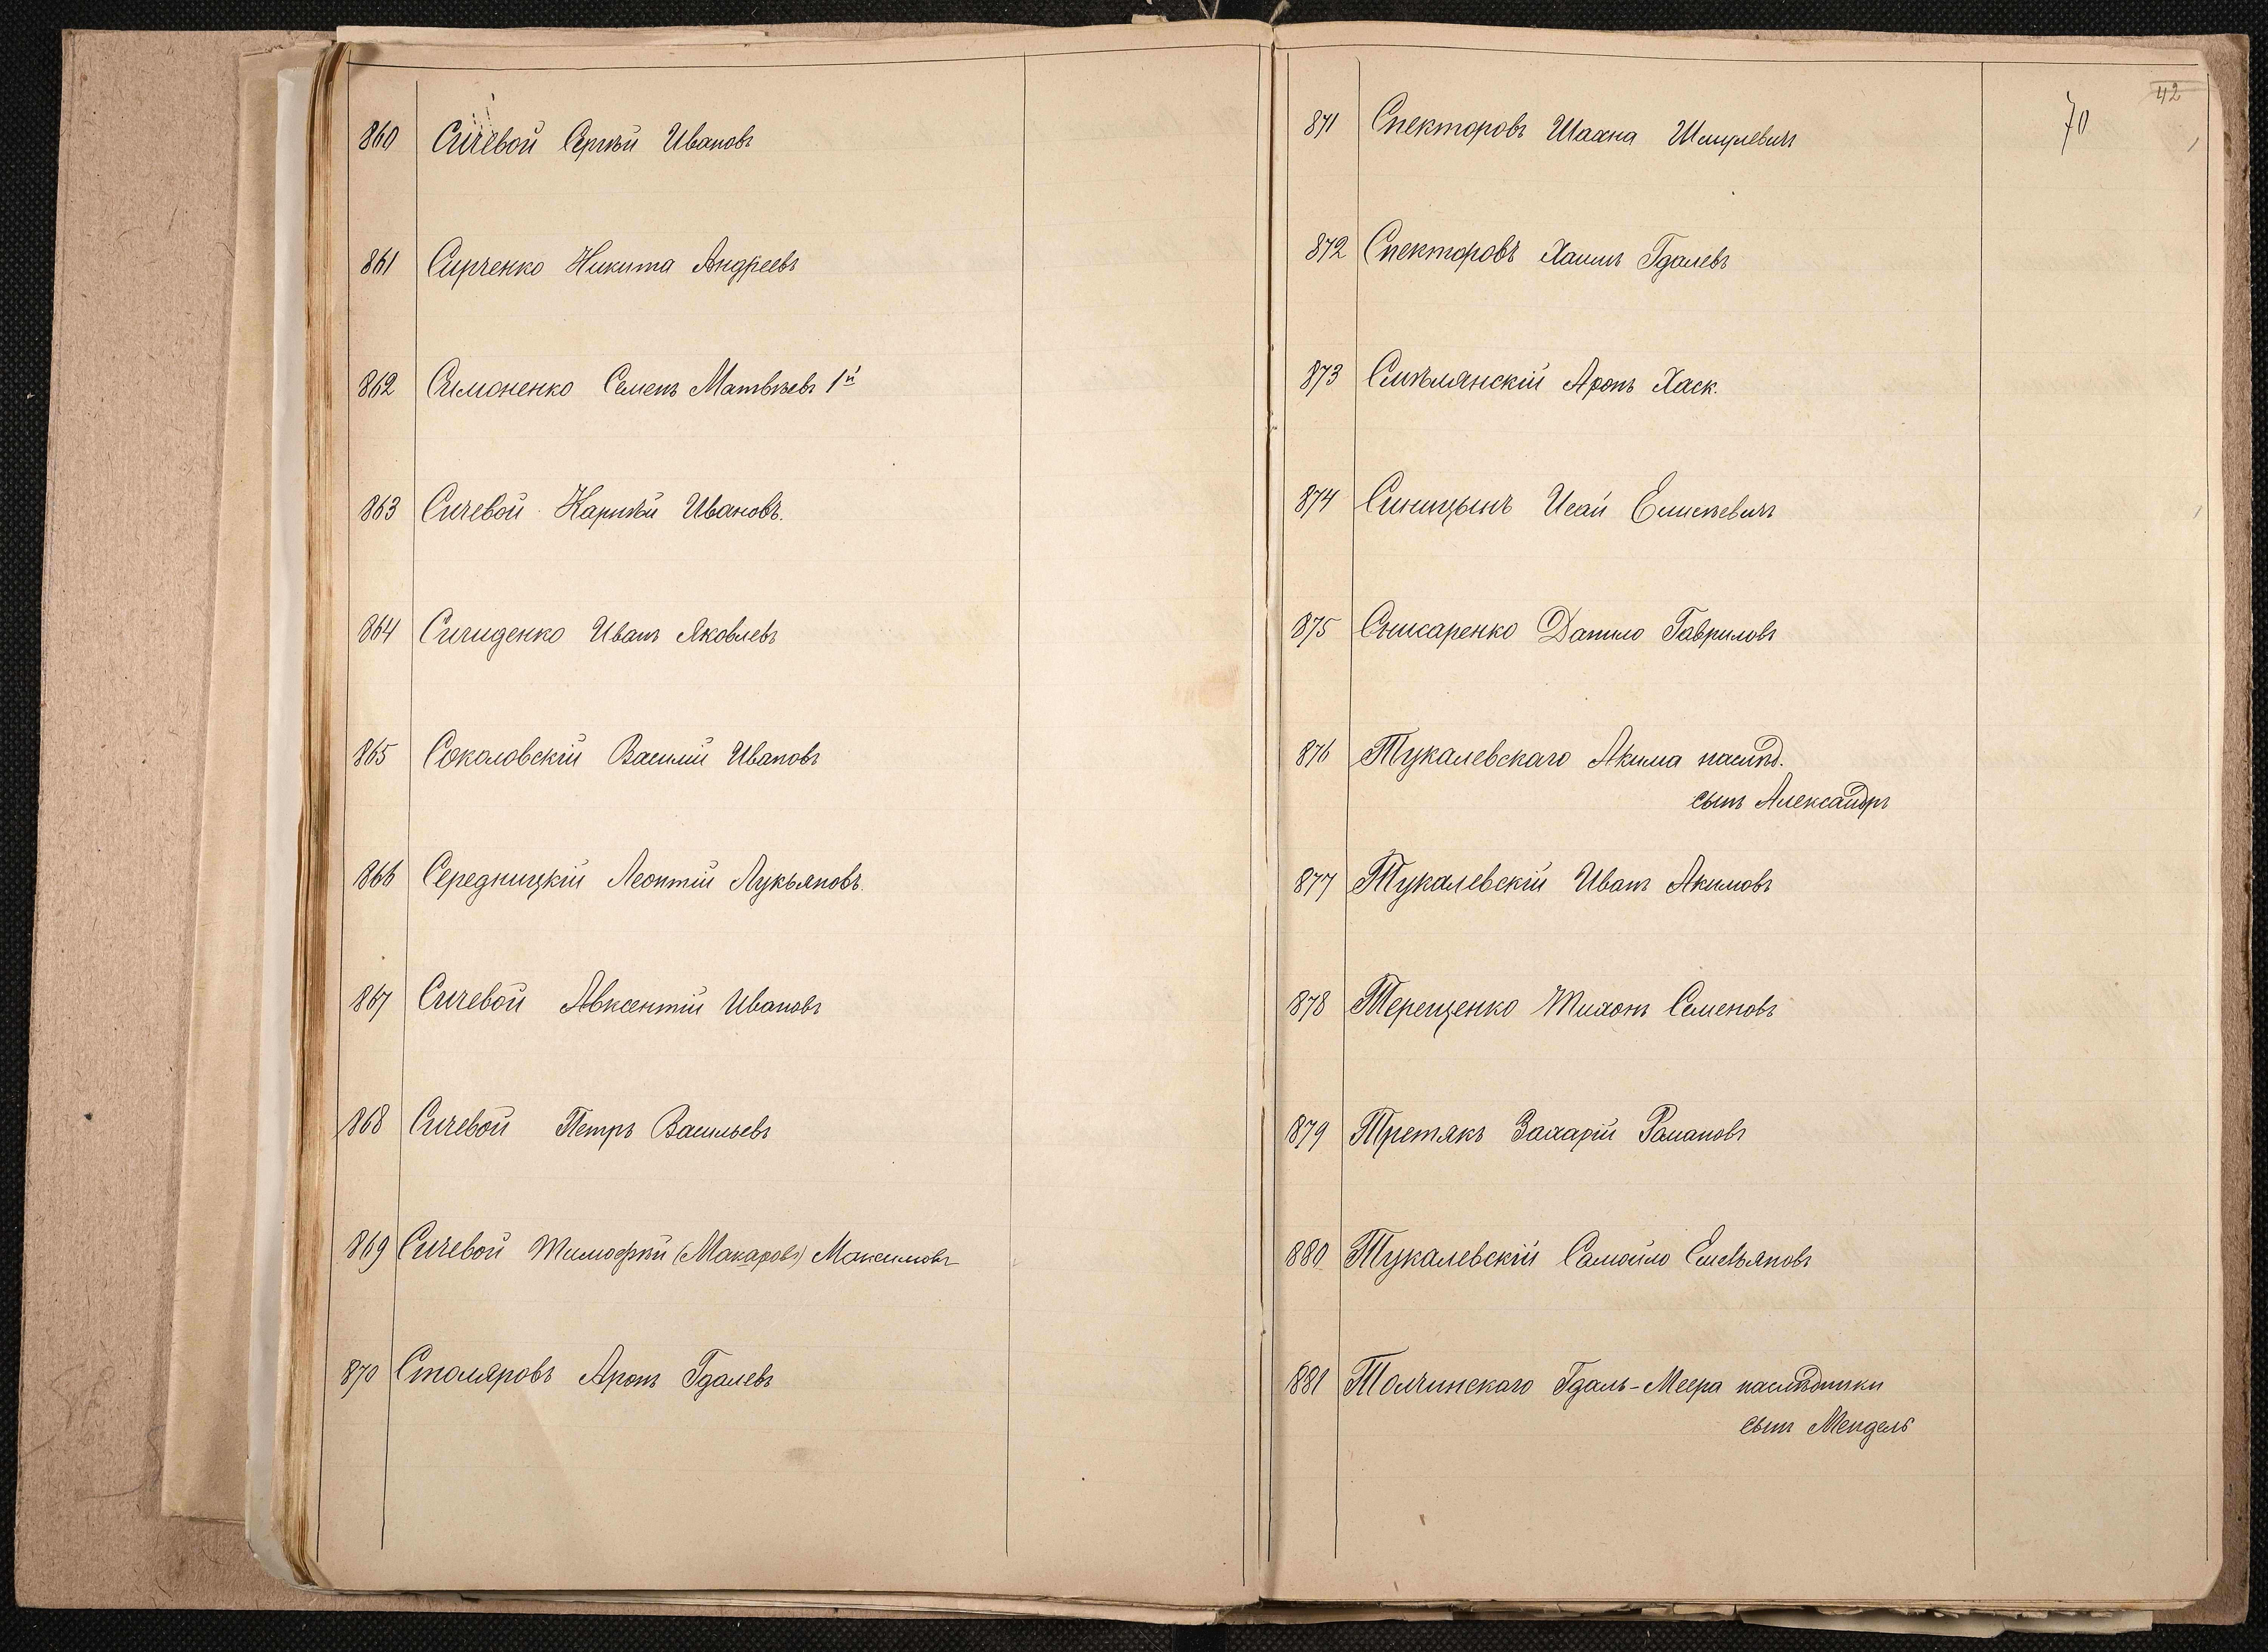 860 Сичевой Сергѣй Ивановъ
861 Сирченко Никита Андреевъ
862 Симоненко Семенъ Матвѣевъ 1й
863 Сичевой Карпѣй Ивановъ.
864 Сичиденко Иванъ Яковлевъ
865 Соколовскій Василій Ивановъ
866 Середницкій Леонтій Лукьяновъ.
867 Сичевой Авксентій Ивановъ
868 Сичевой Петръ Васильевъ
869 Сичевой Тимофѣй (Макаровъ) Максимовъ
870 Столяровъ Аронъ Гдалевъ
42
70
871 Спекторовъ Шахна Шмулевичъ
872 Спекторовъ Хаимъ Гдалевъ
873 Смѣлянскій Аронъ Хаск.
874 Синицынъ Исай Елисѣевичъ
875 Снисаренко Данило Гавриловъ
876 Тукалевскаго Акима наслѣд.
сынъ Александръ
877 Тукалевскій Иванъ Акимовъ
878 Терещенко Тихонъ Семеновъ
879 Третякъ Захарій Романовъ
880 Тукалевскій Самойло Емельяновъ
881 Толчинскаго Гдаль-Меера наслѣдники
сынъ Мендель